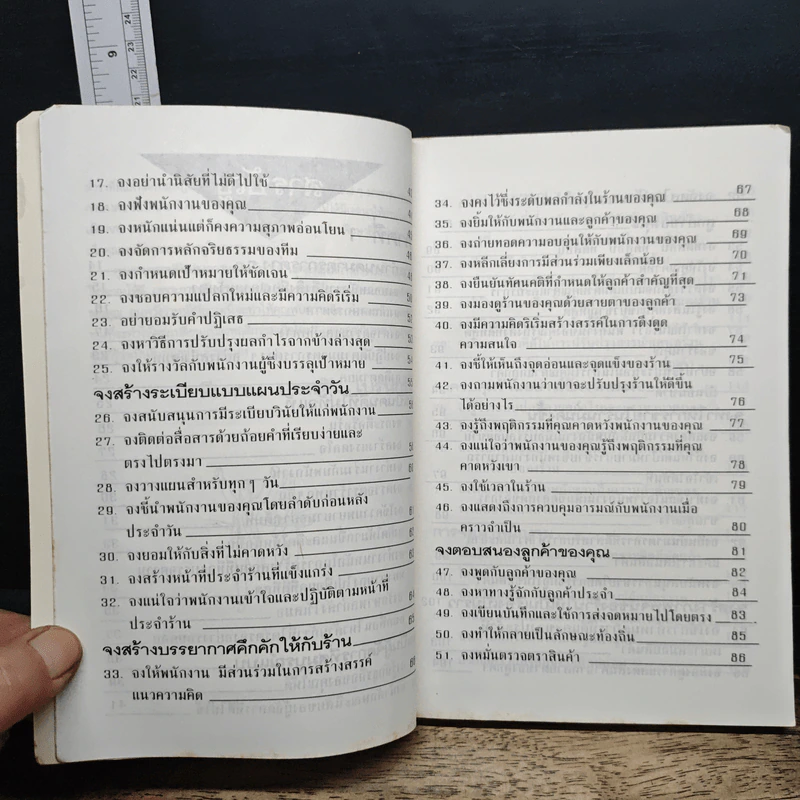 9
24
23
22
21
17. จงอย่านำนิสัยที่ไม่ดีไปใช้
18. จงฟังพนักงานของคุณ
19. จงหนักแน่นแต่ก็คงความสุภาพอ่อนโยน
20. จงจัดการหลักจริยธรรมของทีม
21. จงกำหนดเป้าหมายให้ชัดเจน
22. จงชอบความแปลกใหม่และมีความคิดริเริ่ม
23. อย่ายอมรับคำปฏิเสธ
24. จงหาวิธีการปรับปรุงผลกำไรจากข้างล่างสุด
25. จงให้รางวัลกับพนักงานผู้ซึ่งบรรลุเป้าหมาย
จงสร้างระเบียบแบบแผนประจำวัน
26. จงสนับสนุนการมีระเบียบวินัยให้แก่พนักงาน
27. จงติดต่อสื่อสารด้วยถ้อยคำที่เรียบง่ายและ
ตรงไปตรงมา
28. จงวางแผนสำหรับทุกๆ วัน
29. จงชี้นำพนักงานของคุณโดยลำดับก่อนหลัง
ประจำวัน
30. จงยอมให้กับสิ่งที่ไม่คาดหวัง
31. จงสร้างหน้าที่ประจำร้านที่แข็งแกร่ง
32. จงแน่ใจว่าพนักงานเข้าใจและปฏิบัติตามหน้าที่
ประจำร้าน
จงสร้างบรรยากาศคึกคักให้กับร้าน
33. จงให้พนักงาน มีส่วนร่วมในการสร้างสรรค์
แนวความคิด
34. จงคงไว้ซึ่งระดับพลกำลังในร้านของคุณ 67
35. จงยิ้มให้กับพนักงานและลูกค้าของคุณ 68
36. จงถ่ายทอดความอบอุ่นให้กับพนักงานของคุณ 69
37. จงหลีกเลี่ยงการมีส่วนร่วมเพียงเล็กน้อย 70
38. จงยืนยันทัศนคติที่กำหนดให้ลูกค้าสำคัญที่สุด 71
39. จงมองดูร้านของคุณด้วยสายตาของลูกค้า 73
40. จงมีความคิดริเริ่มสร้างสรรค์ในการดึงดูด
ความสนใจ 74
41. จงชี้ให้เห็นถึงจุดอ่อนและจุดแข็งของร้าน 75
42. จงถามพนักงานว่าเขาจะปรับปรุงร้านให้ดีขึ้น
ได้อย่างไร 76
43. จงรู้ถึงพฤติกรรมที่คุณคาดหวังพนักงานของคุณ 77
44. จงแน่ใจว่าพนักงานของคุณรู้ถึงพฤติกรรมที่คุณ
คาดหวังเขา 78
45. จงใช้เวลาในร้าน 79
46. จงแสดงถึงการควบคุมอารมณ์กับพนักงานเมื่อ
คราวจำเป็น 80
จงตอบสนองลูกค้าของคุณ 81
47. จงพูดกับลูกค้าของคุณ 82
48. จงหาทางรู้จักกับลูกค้าประจำ 84
49. จงเขียนบันทึกและใช้การส่งจดหมายไปโดยตรง 83
50. จงทำให้กลายเป็นลักษณะท้องถิ่น 85
51. จงหมั่นตรวจตราสินค้า 86